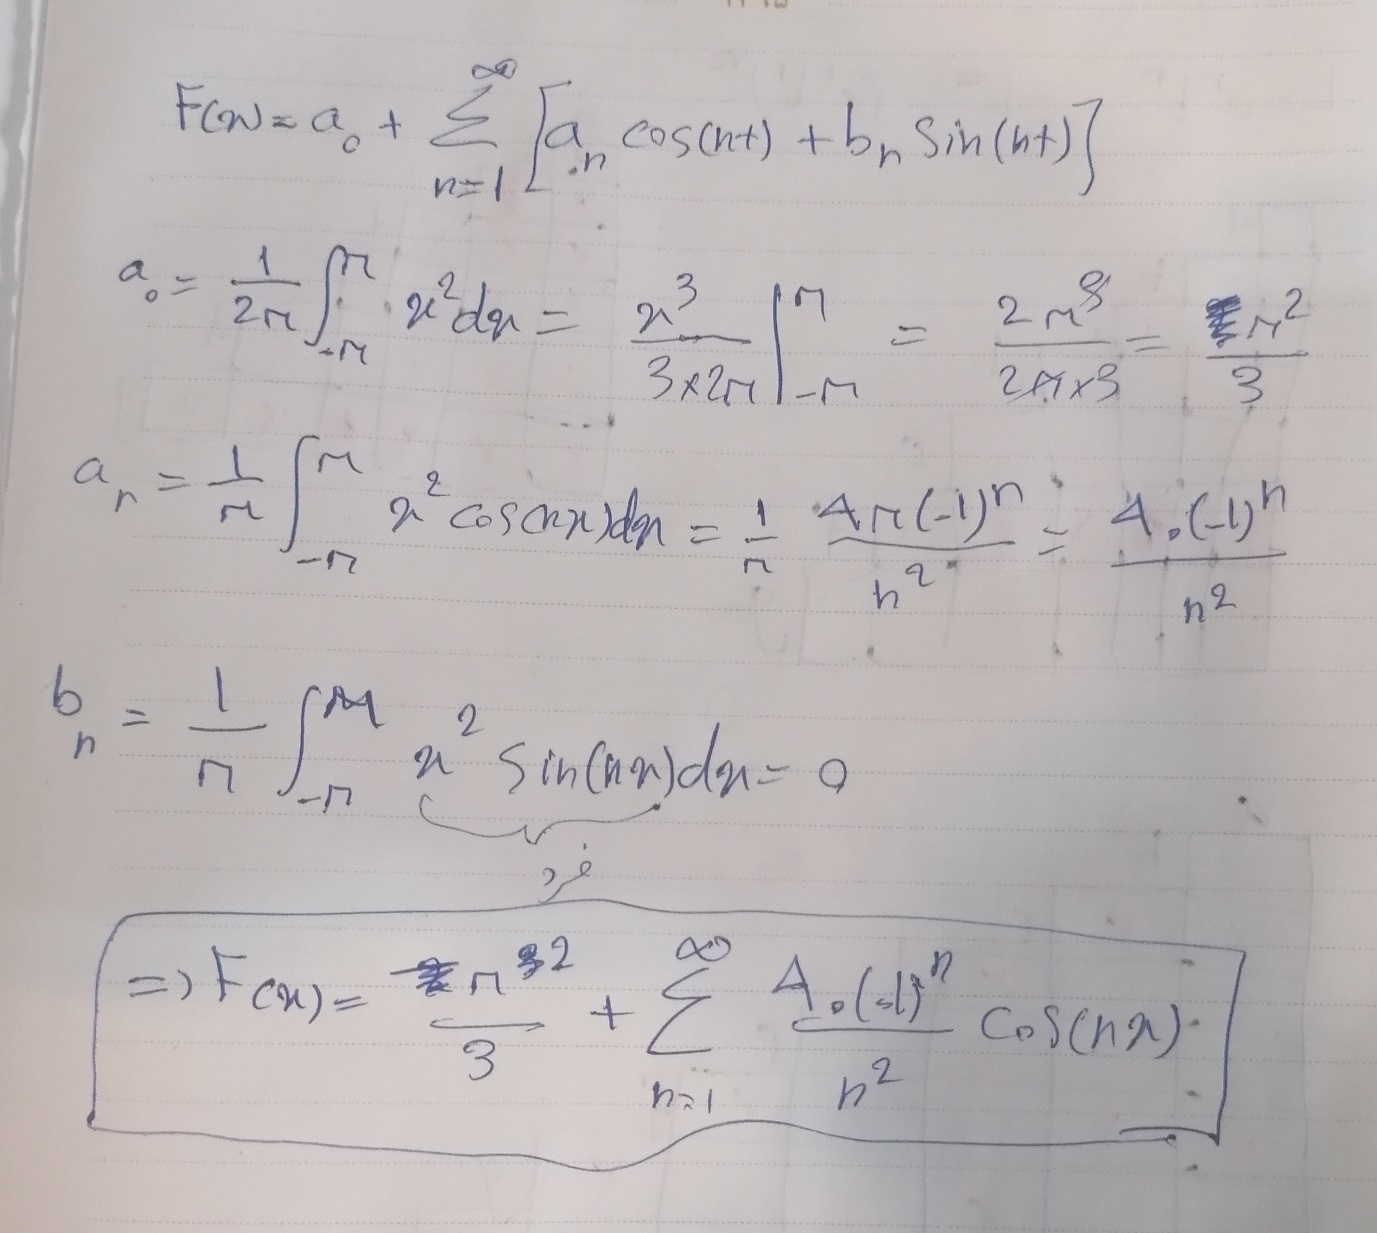 F(x) = a₀ + ∑_{n=1}^{∞} [aₙ cos(nt) + bₙ sin(nt)]
a₀ = 1/2π ∫_{-π}^{π} x² dx = x³/(3×2π) |_{-π}^{π} = 2π³/(2π×3) = π²/3
aₙ = 1/π ∫_{-π}^{π} x² cos(nx) dx = 1/π 4π(-1)ⁿ/n² = 4.(-1)ⁿ/n²
bₙ = 1/π ∫_{-π}^{π} x² sin(nx) dx = 0
فرد
=> F(x) = π²/3 + ∑_{n=1}^{∞} 4.(-1)ⁿ/n² cos(nx)